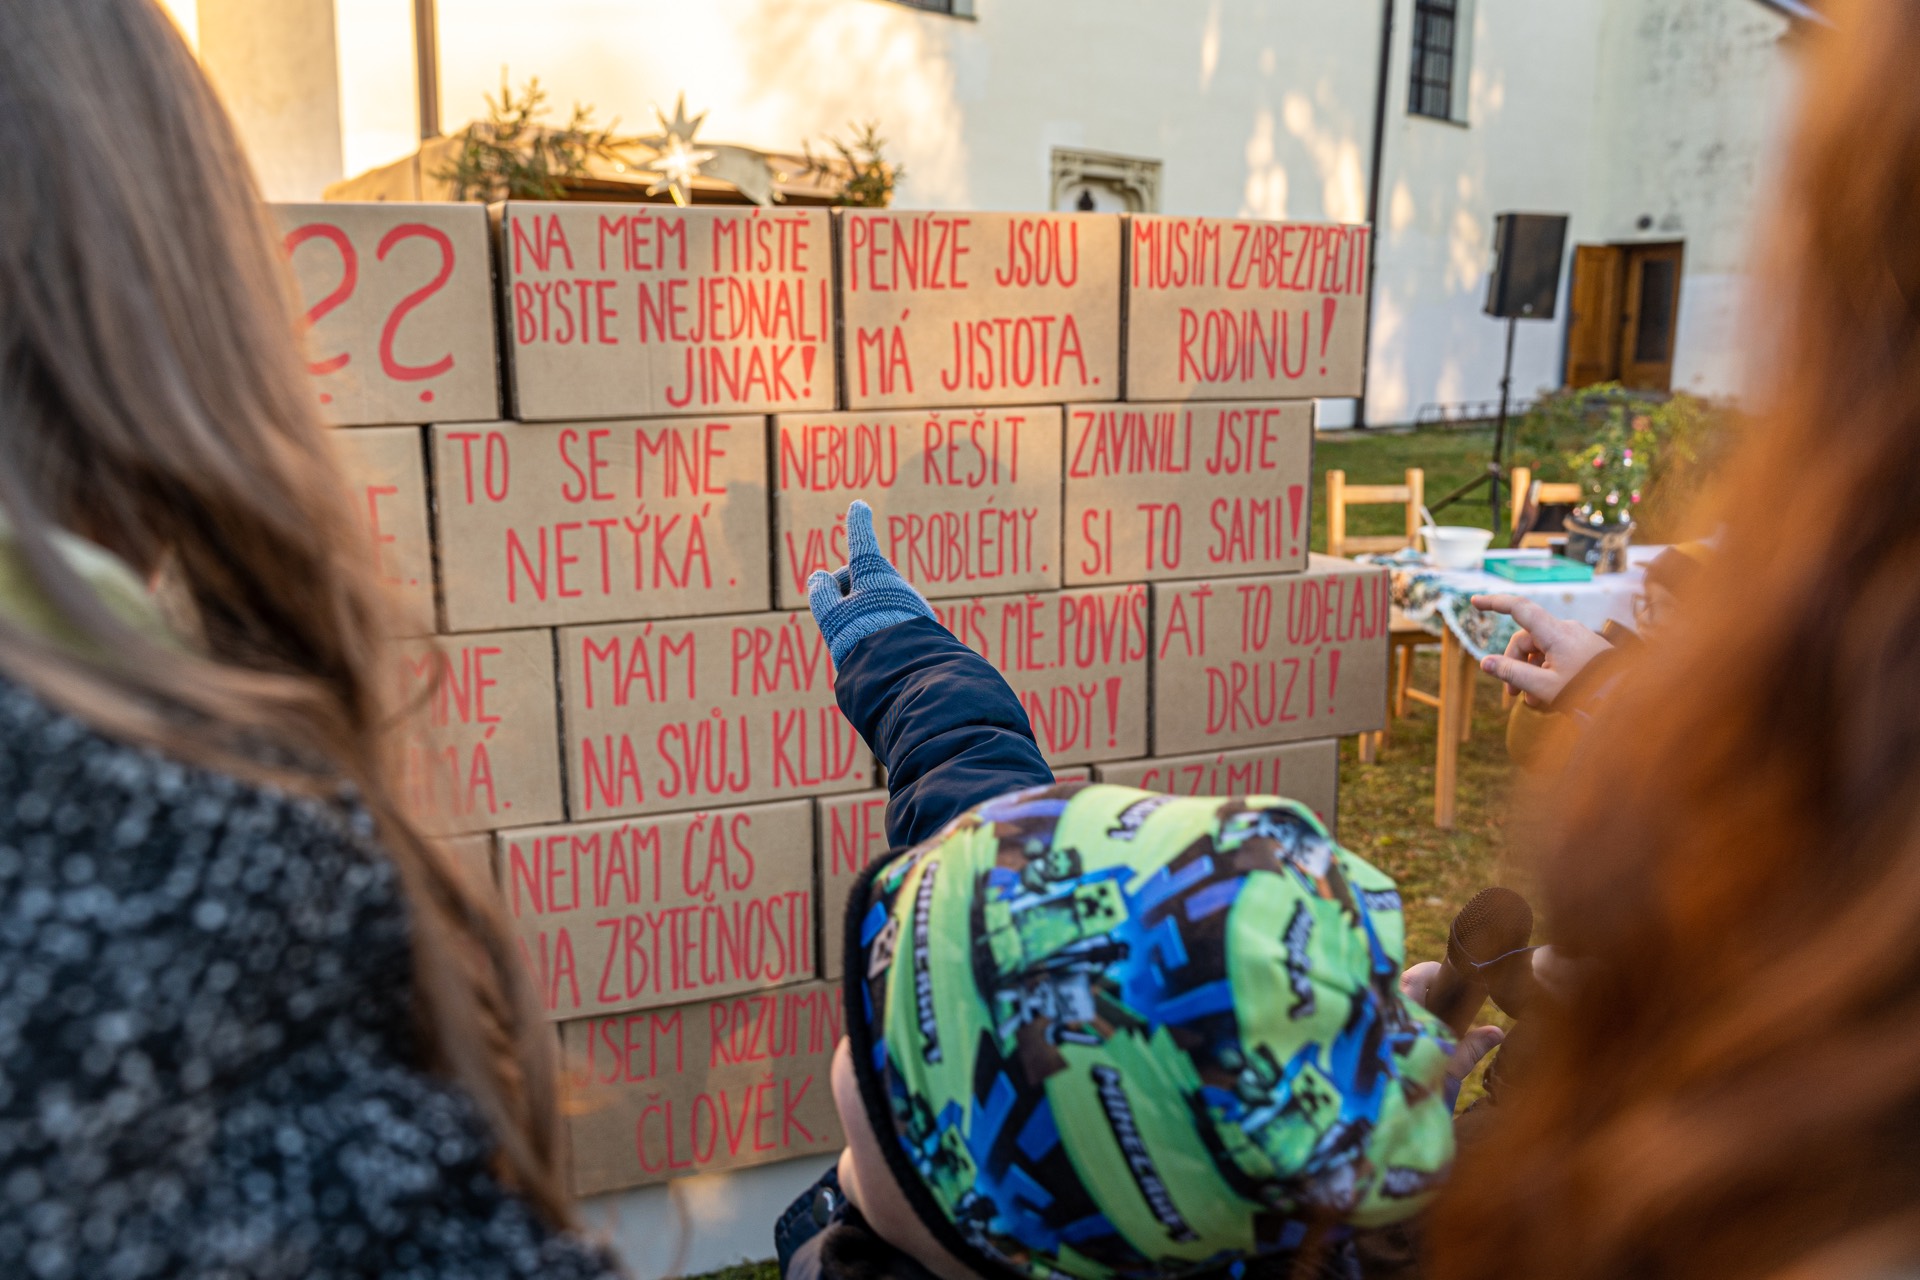 ??
NA MÉM MÍSTĚ
BYSTE NEJEDNALI
JINAK!
PENÍZE JSOU
MÁ JISTOTA.
MUSÍM ZABEZPEČIT
RODINU!
TO SE MNE
NETÝKÁ.
NEBUDU ŘEŠIT
PROBLÉMY.
ZAVINILI JSTE
SI TO SAMI!
MNE
MÁM
NA SVŮJ KLID.
MĚ. POVÍŠ
AŤ TO UDĚLAJÍ
DRUZÍ!
NEMÁM ČAS
NA ZBYTEČNOSTI
NE
CIZÍMU
JSEM
ČLOVĚK.
MINECRAFT